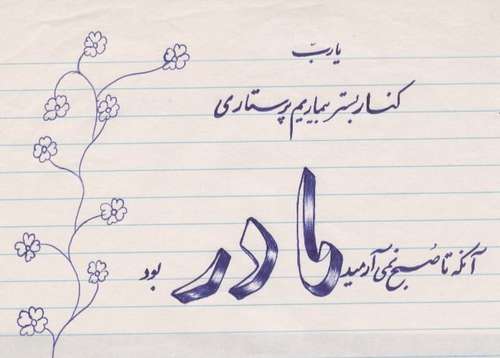 یا ربّ
کنار بستر بیماریم پرستاری
آنکه تا صُبح نمی آرمید مادر بود